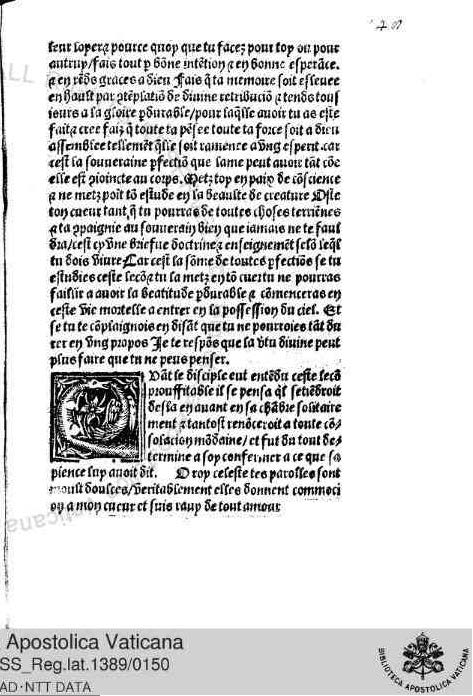 leur soperₐ pource quoy que tu facez pour toy ou pour
autruy/fais tout ꝑ bōne intētion ⁊ en bonne esperāce.
⁊ en rēds graces a dieu Fais q̄ ta memoire soit esleuee
en hault par ꝯtēplatiō de diuine retribuciō ⁊ tends tous
iours a la gloire ꝑdurable/pour laq̄lle auoir tu as este
fait⁊ cree faiz q̄ toute ta pēsee toute ta force soit a dieu
assemblee tellemēt q̄lle soit ramenee a vng esperit car
cest la souueraine ꝑfectiō que lame peut auoir tāt cōe
elle est ꝯioincte au corps. Metz toy en paix de cōscience
⁊ ne metz poīt tō estude en la beaulte de creature Oste
ton cueur tant q̄ tu pourras de toutes choses terriēnes
⁊ ta ꝯpaignie au souuerain bien que iamais ne te faul
dra/cest cy vne briefue doctrine⁊ enseignemēt selō leq̄l
tu dois viure Car cest la sōme de toutes ꝑfectiōs se tu
estudies ceste lecō⁊ tu la metz en tō cueur tu ne pourras
faillir a auoir la beatitude ꝑdurable ⁊ cōmenceras en
ceste vie mortelle a entrer en la possession du ciel. Et
se tu te cōplaignois en disāt que tu ne pourroies tāt du
rer en vng propos Je te respōs que la v̄tu diuine peut
plus faire que tu ne peus penser.
Quāt le disciple eut entēdu ceste lecō
prouffitable il se pensa q̄l se tiēdroit
desla en auant en sa chābre solitaire
ment ⁊ tantost renōceroit a toute cō-
solacion mōdaine/ et fut du tout de-
termine a soy confermer a ce que sa
pience luy auoit dit. O roy celeste tes parolles sont
moult doulces/veritablement elles donnent commoci
on a mon cueur et suis rauy de tout amour
Apostolica Vaticana
SS_Reg.lat.1389/0150
AD·NTT DATA
BIBLIOTECA APOSTOLICA VATICANA